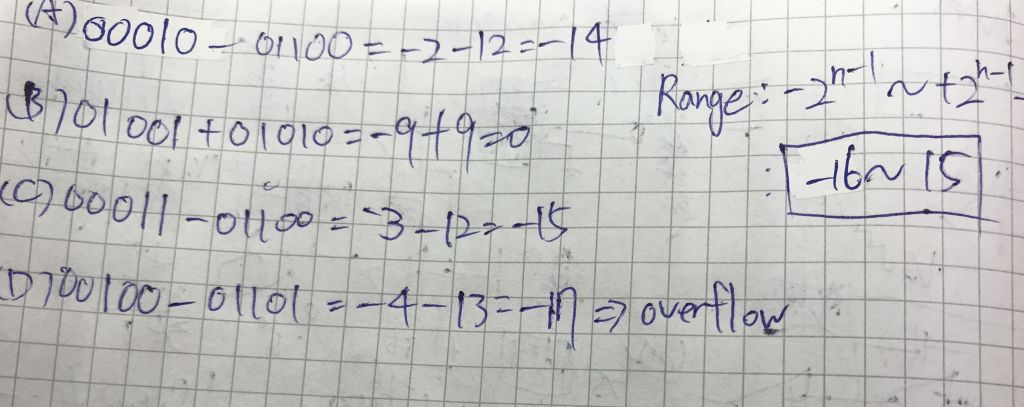 (A) 00010 - 01100 = -2 - 12 = -14
Range: -2^{n-1} ~ +2^{n-1} -
(B) 01001 + 01010 = -9 + 9 = 0
: -16 ~ 15
(C) 00011 - 01100 = -3 - 12 = -15
(D) 00100 - 01101 = -4 - 13 = -17 => overflow